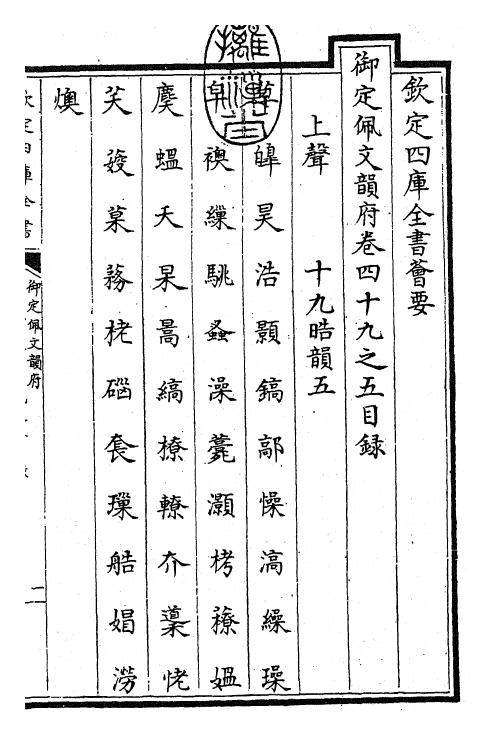 欽定四庫全書薈要
御定佩文韻府卷四十九之五目録
上聲 十九晧韻五
皥 昊 浩 顥 鎬 鄗 懆 滈 繰 璪
襖 繅 駣 蚤 澡 薧 灝 栲 媼
蝹 夭 杲 暠 縞 橑 轑 夰 恅
芺 菒 栳 碯 套 艁 媢 澇
燠
欽定四庫全書
御定佩文韻府
二